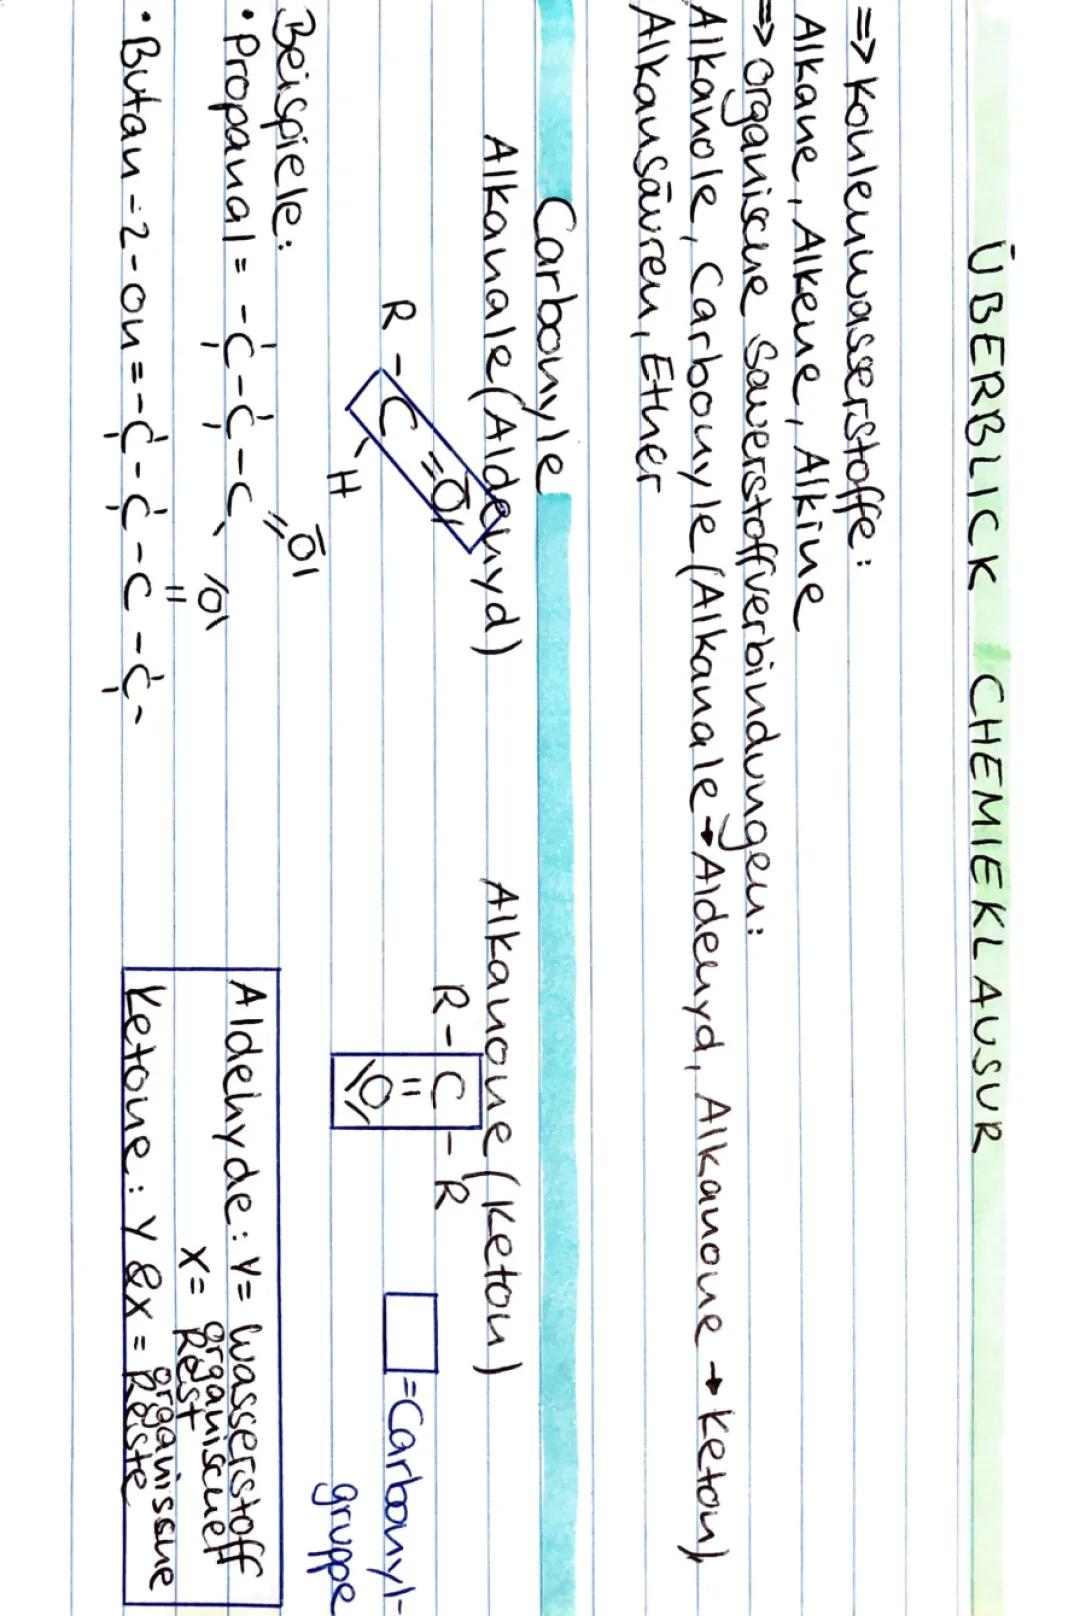 ÜBERBLICK CHEMIEKLAUSUR
=> Kohlenwasserstoffe:
Alkane, Alkene, Alkine
=> organische Sauerstoffverbindungen:
Alkanole, Carbonyle (Alkanale → Aldehyd, Alkanone → Keton),
Alkansäuren, Ether
Carbonyle
Alkanale (Aldehyd)
Alkanone (Keton)
R-C=O
H
R-C-R
=
O
□ = Carbonyl-
gruppe
Beispiele:
• Propanal = -C-C-C=O
• Butan-2-on = -C-C-C-C-
=
O
Aldehyde: Y = Wasserstoff
X = organischer
Rest
Ketone: Y & X = organische
Reste